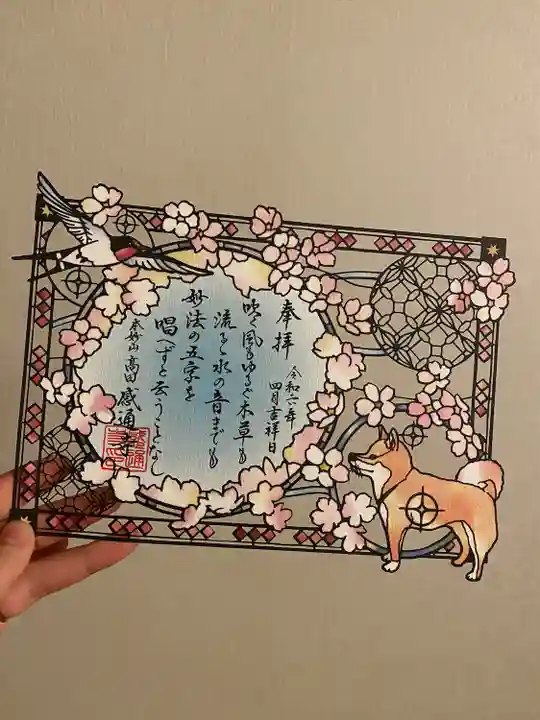 奉拝
令和六年
四月吉祥日
吹く風もゆるぐ木草も
流るゝ水の音までも
妙法の五字を
唱へずと云うことなし
本妙山 高田 感通寺